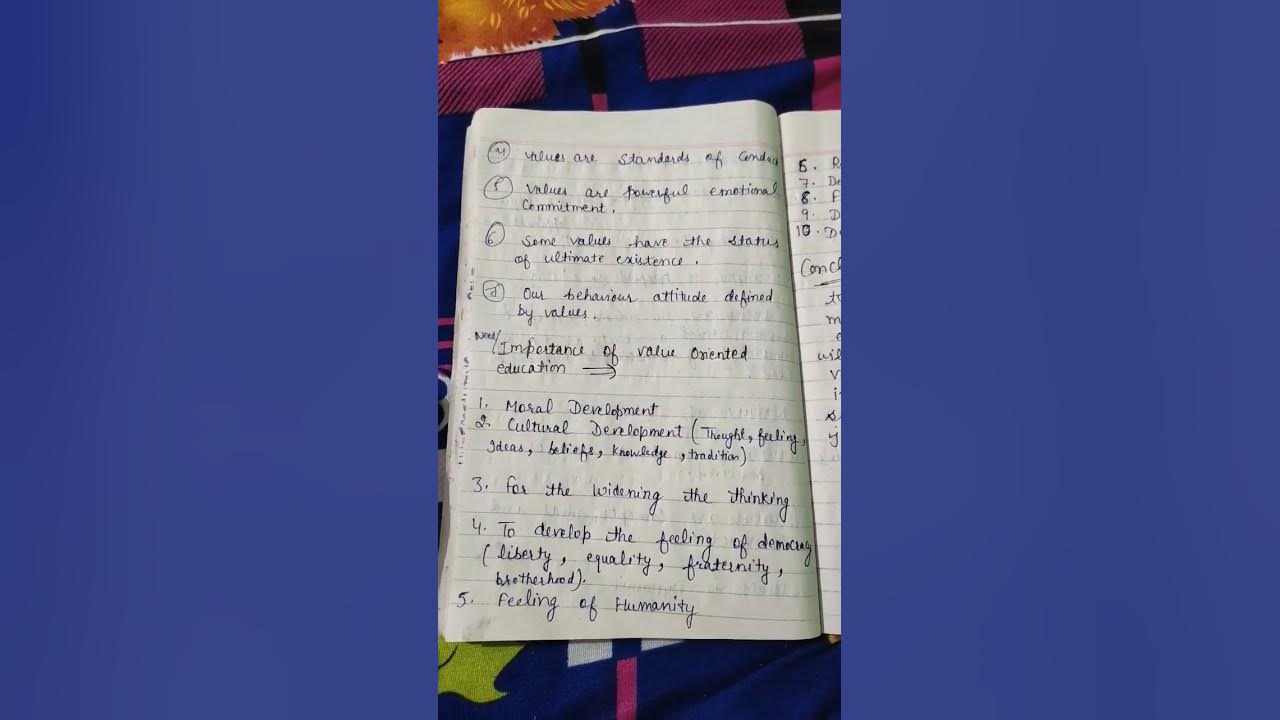 4 Values are Standards of Conduct
5 Values are powerful emotional
Commitment.
6 Some values have the status
of ultimate existence.
Our behaviour attitude defined
by values.
Need/
Importance of value Oriented
education ⟹
1. Moral Development
2. Cultural Development (Thought, feeling,
Ideas, beliefs, knowledge, tradition)
3. For the widening the thinking
4. To develop the feeling of democracy
(liberty, equality, fraternity,
brotherhood).
5. Feeling of Humanity
6. R
7. De
8. F
9. D
10. De
Concl
to
m